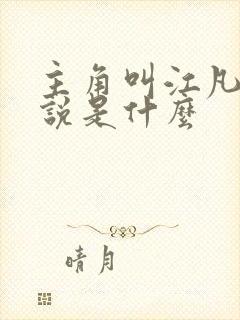 主角叫江凡
說是什麼
晴月